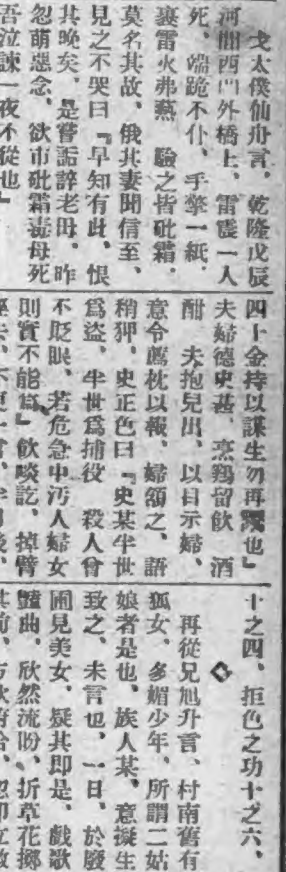 戈太僕仙舟言、乾隆戊辰
河間西門外橋上、雷震一人
死、端跪不仆、手擎一紙
裹雷火弗爇、驗之皆砒霜、
莫名其故、俄其妻聞信至、
見之不哭曰『早知有此、恨
其晚矣、是嘗詬誶老母、昨
忽萌惡念、欲市砒霜毒母死
吾泣諫一夜不從也』
四十金持以謀生勿再也』
夫婦德史甚、烹鷄留飲 酒
酣 夫抱兒出、以目示婦、
意令薦枕以報、婦頷之、語
稍狎、史正色曰『史某半世
爲盜、半世爲捕役 殺人曾
不眨眼、若危急中汚人婦女
則實不能爲』飲啖訖、掉臂
十之四、拒色之功十之六、
再從兄旭升言、村南舊有
狐女、多媚少年、所謂二姑
娘者是也、族人某、意擬生
致之、未言也、一日、於廢
圃見美女、疑其即是、戲歌
豔曲、欣然流盼、折草花擲